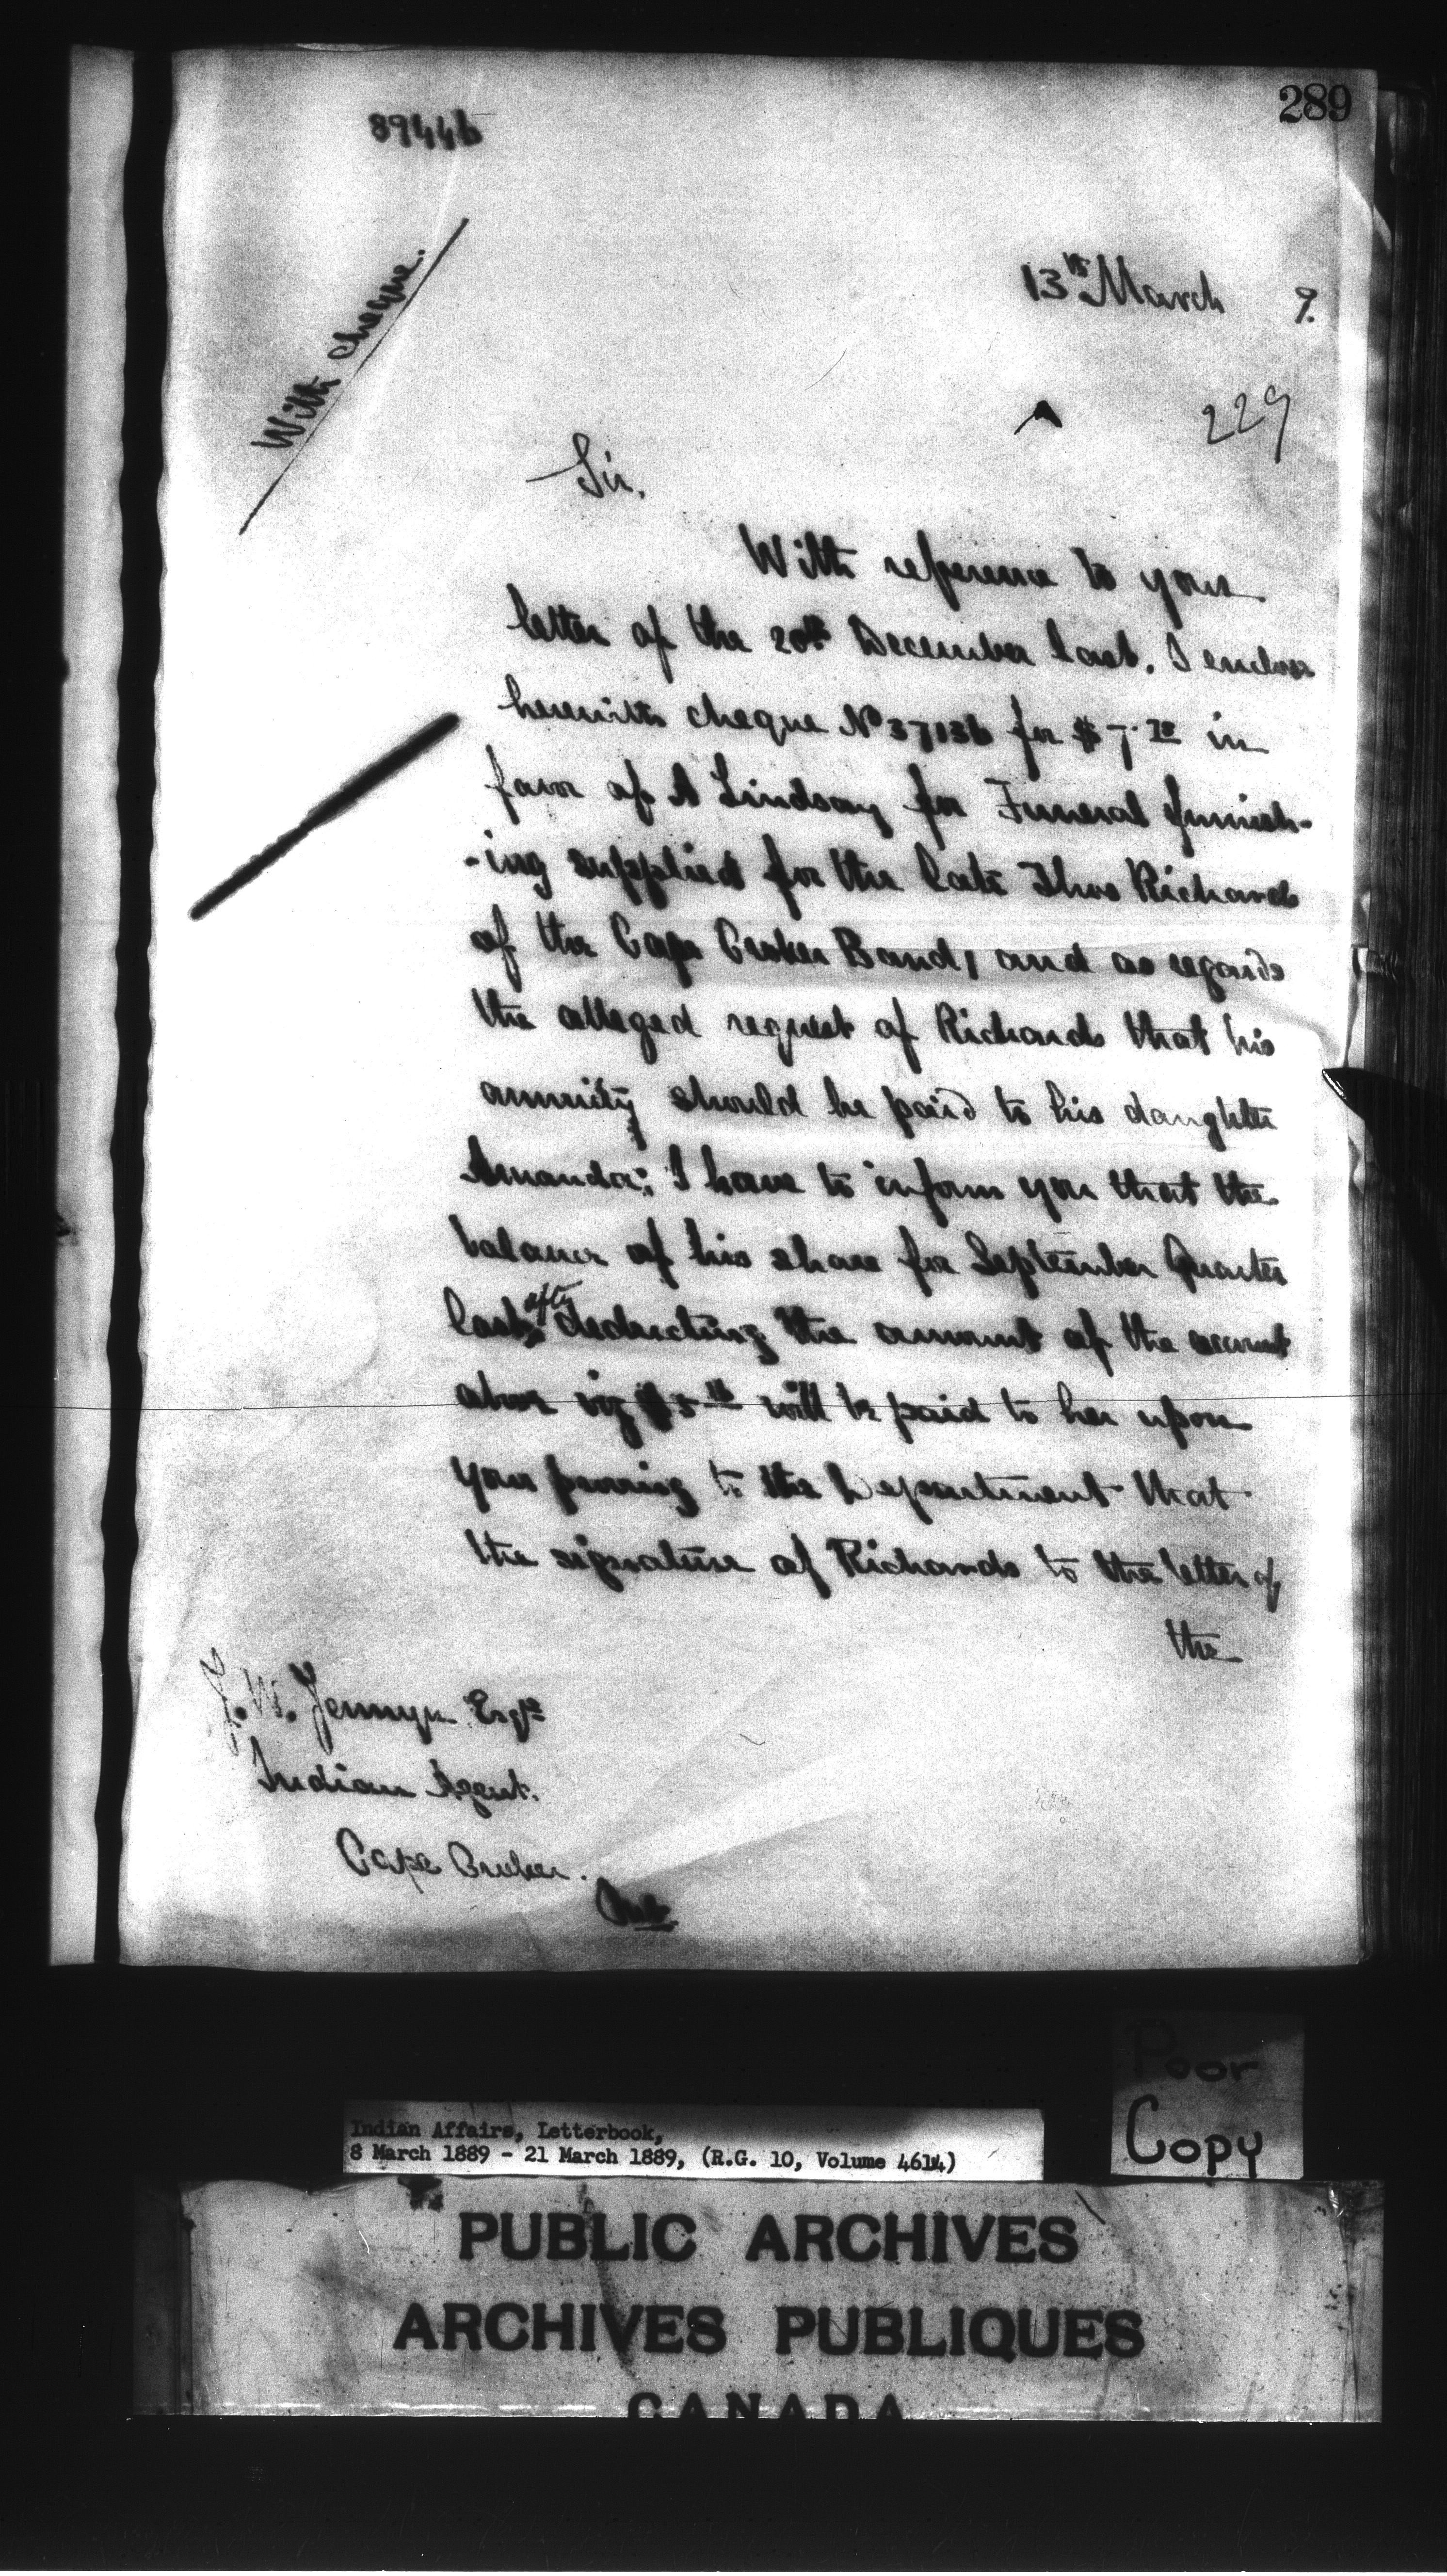 289
89446
With cheque.
13th March 9.
229
Sir,
With reference to your
letter of the 20th December last, I enclose
herewith cheque No 37136 for $7.70 in
favor of A Lindsay for Funeral furnish-
-ing supplied for the late Thos Richards
of the Cape Croker Band, and as regards
the alleged request of Richards that his
annuity should be paid to his daughter
Amanda; I have to inform you that the
balance of his share for September Quarter
last, after deducting the amount of the account
above viz will be paid to her upon
your proving to the Department that
the signature of Richards to the letter of
the
J. W. Jermyn Esqre
Indian Agent.
Cape Croker.
Poor
Copy
Indian Affairs, Letterbook,
8 March 1889 - 21 March 1889, (R.G. 10, Volume 4614)
PUBLIC ARCHIVES
ARCHIVES PUBLIQUES
CANADA